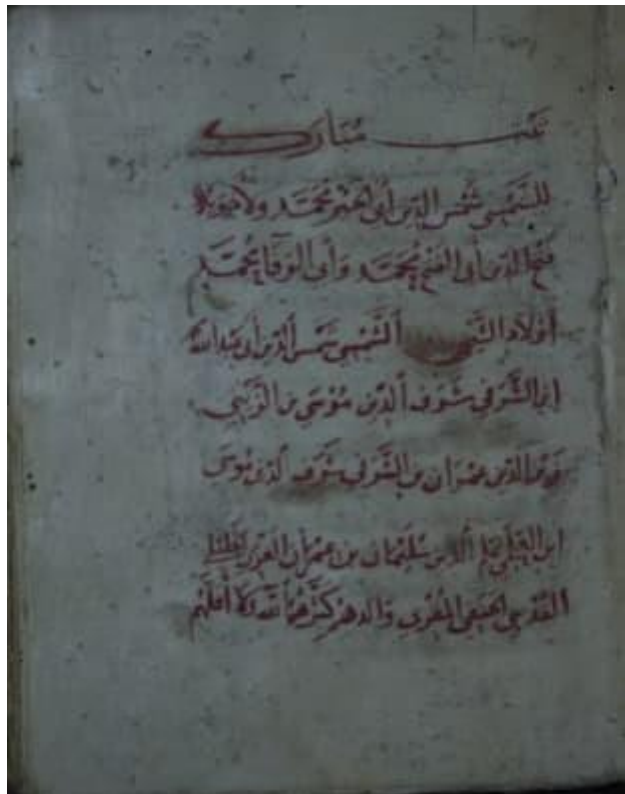 ثبت مبارك
للشمسي شمس الدين أبي الخير محمد ولأخويه
فتح الدين أبي الفتح محمد وأبي الوفا محمد
أولاد الشمسي شمس الدين أبي عبد الله
ابن الشرفي شرف الدين موسى بن الزيني
زين الدين عمران بن الشرفي شرف الدين موسى
ابن العلمي علم الدين سليمان بن عمران الغزي
القدسي الحنفي المقري والدهم كثرهم الله ولا أقلهم